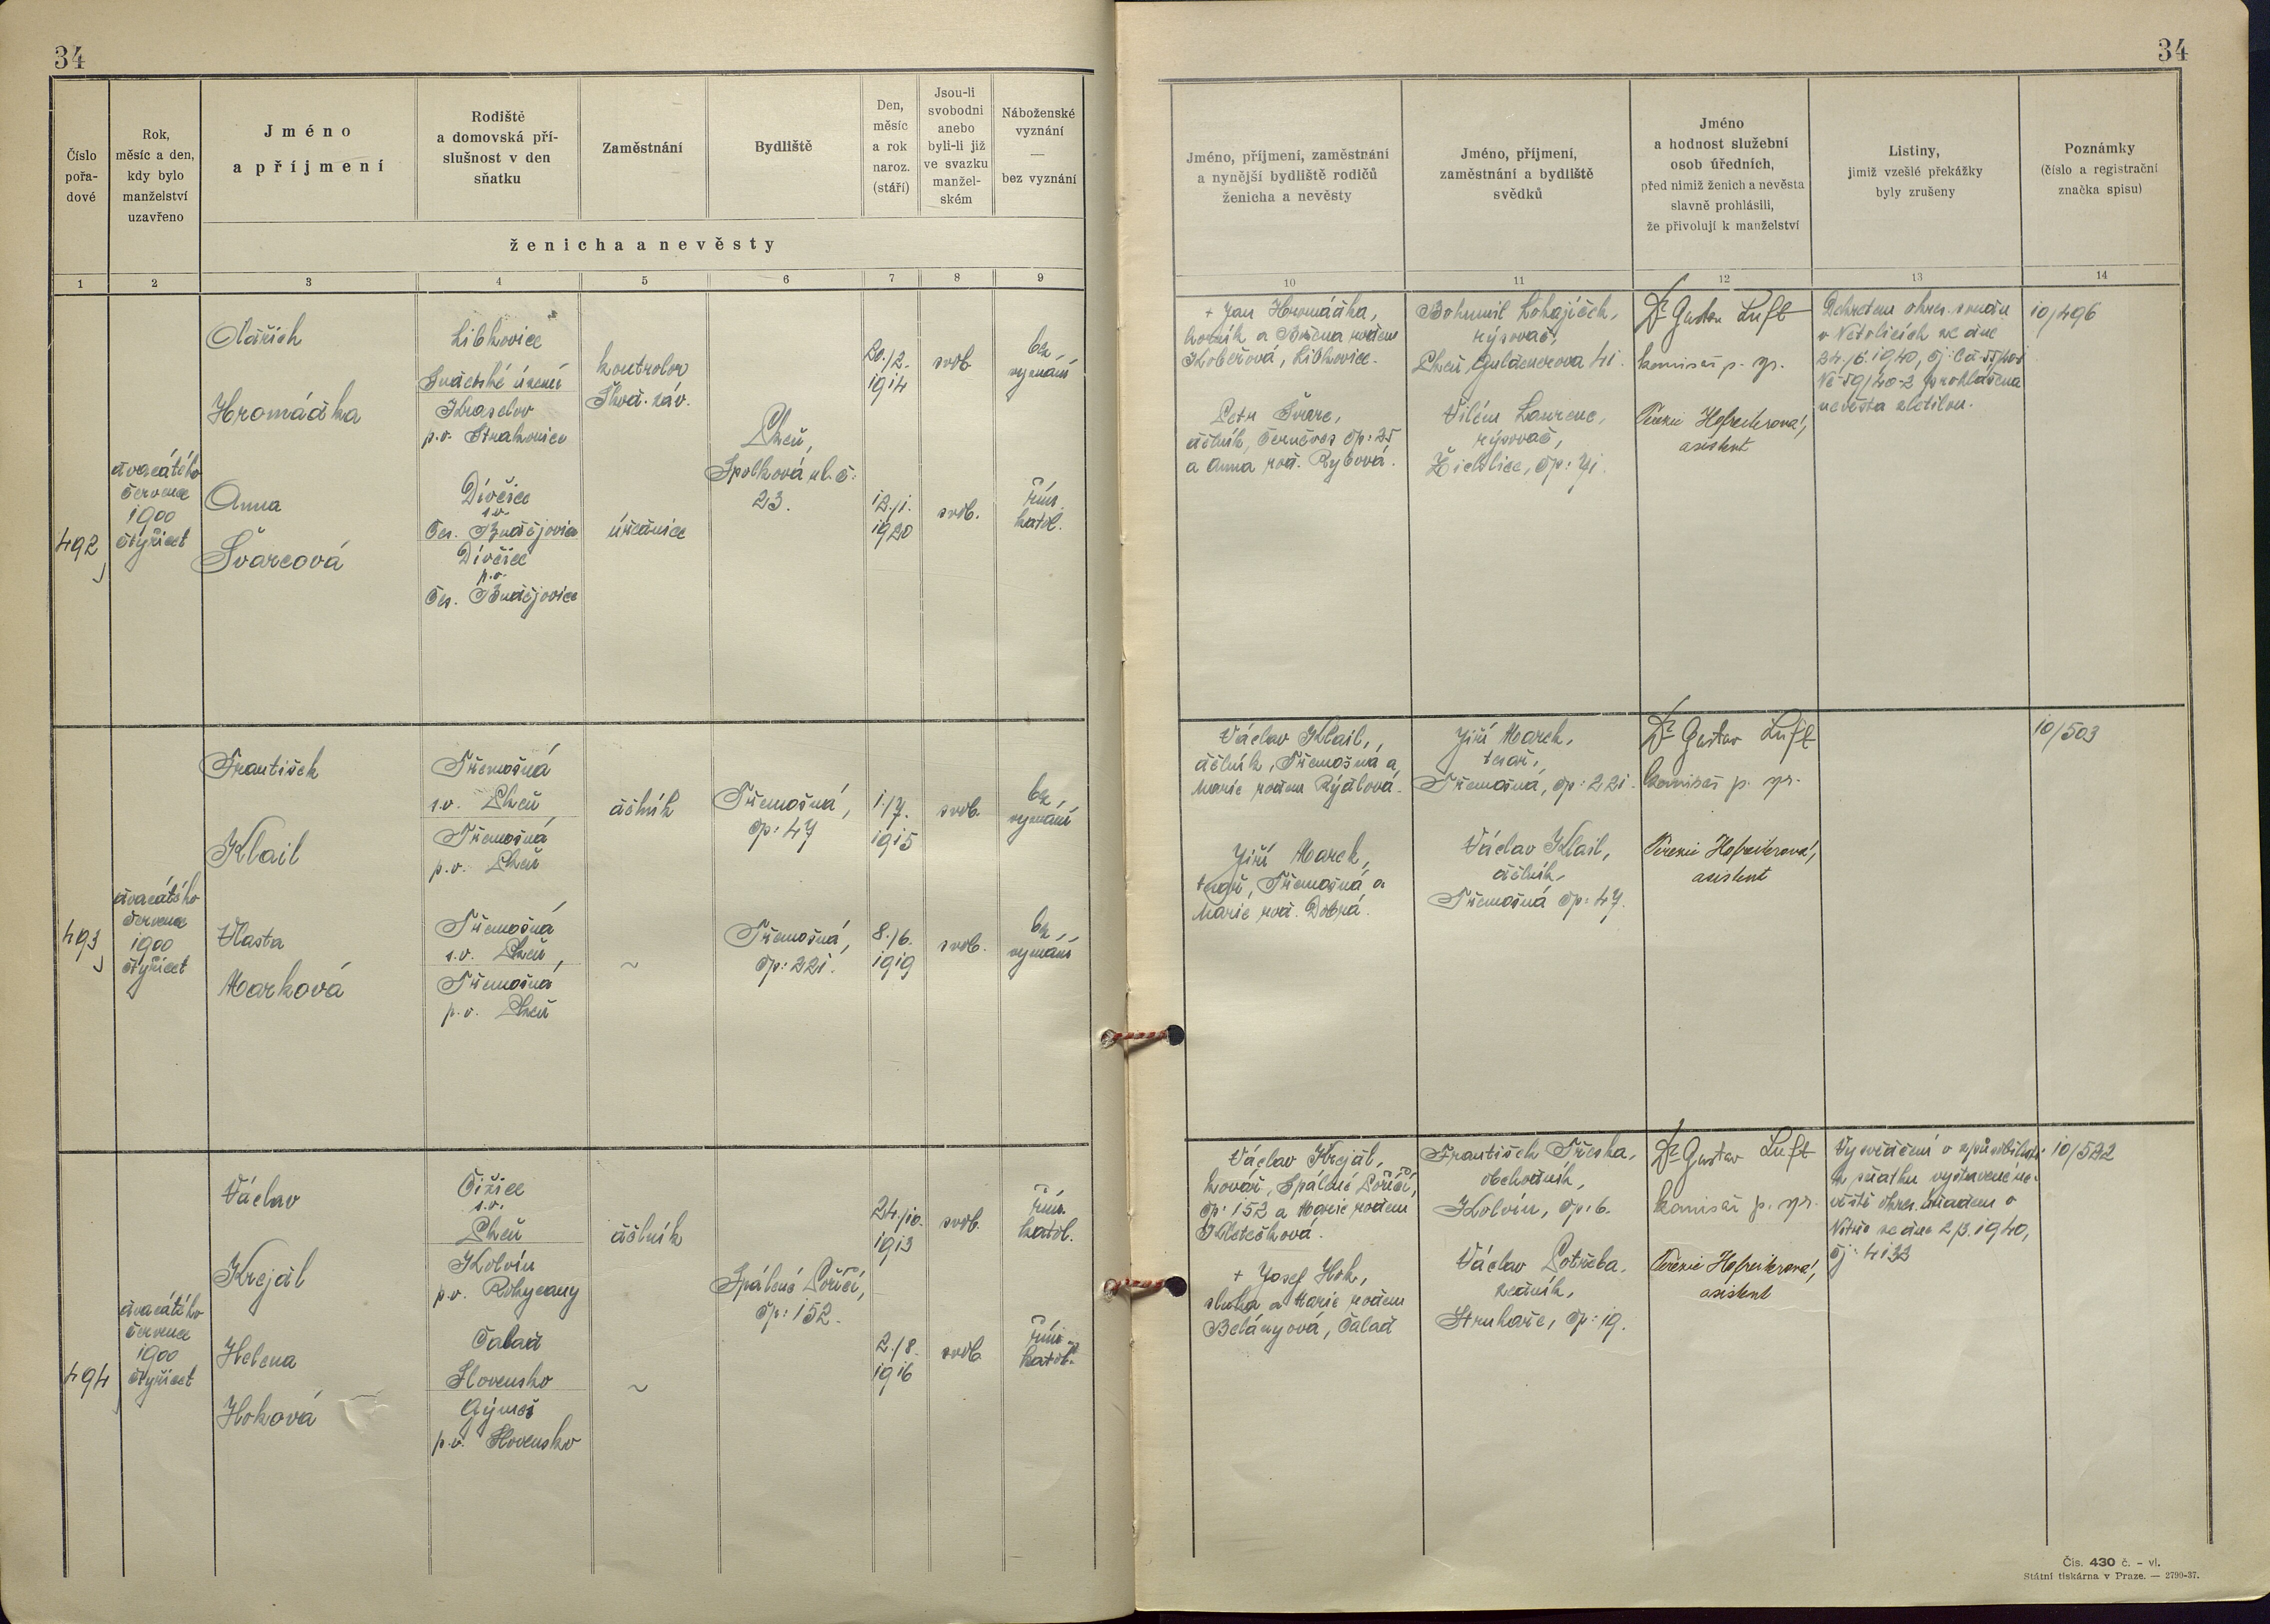 34
34
Číslo
pořa-
dové
Rok,
měsíc a den,
kdy bylo
manželství
uzavřeno
Jméno
a příjmení
Rodiště
a domovská pří-
slušnost v den
sňatku
Zaměstnání
Bydliště
Den,
měsíc
a rok
naroz.
(stáří)
Jsou-li
svobodni
anebo
byli-li již
ve svazku
manžel-
ském
Náboženské
vyznání
—
bez vyznání
ženicha a nevěsty
1 2 3 4 5 6 7 8 9
Jméno, příjmení, zaměstnání
a nynější bydliště rodičů
ženicha a nevěsty
Jméno, příjmení,
zaměstnání a bydliště
svědků
Jméno
a hodnost služební
osob úředních,
před nimiž ženich a nevěsta
slavně prohlásili,
že přivolují k manželství
Listiny,
jimiž vzešlé překážky
byly zrušeny
Poznámky
(číslo a registrační
značka spisu)
10 11 12 13 14
492
dvacátého
července
1900
čtyřicet
Oldřich
Hromádka
Anna
Švarcová
Libkovice
Sudetské území
Kraselov
p.v. Strakonice
Dívčice
s.v.
Čes. Budějovice
Dívčice
p.v.
Čes. Budějovice
kontrolor
Škod. záv.
úřednice
Plzeň,
Spolková ul. č.
23.
20./2.
1914
12./1.
1920
svob.
svob.
bez
vyznání
řím.
katol.
+ Jan Hromádka,
horník a Božena rodem
Koberová, Libkovice.
Petr Švarc,
dělník, Černěves čp: 25
a Anna rod. Rybová.
Bohumil Lohajíček,
rýsovač,
Plzeň, Guldenerova 41.
Vilém Laurenc,
rýsovač,
Židlice, čp: 71.
Dr Gustav Luft
komisař p. sp.
Terezie Hofreiterová,
asistent
Dekretem okres. soudu
v Netolicích ze dne
24./6. 1940,
prohlášena
nevěsta zletilou.
10/496
493
dvacátého
července
1900
čtyřicet
František
Klail
Vlasta
Marková
Třemošná
s.v. Plzeň
Třemošná
p.v. Plzeň
Třemošná
s.v. Plzeň,
Třemošná
p.v. Plzeň
dělník
~
Třemošná,
čp: 47
Třemošná,
čp: 221.
1./7.
1915
8./6.
1919
svob.
svob.
bez
vyznání
bez
vyznání
Václav Klail,
dělník, Třemošná a
Marie rodem Rýdlová.
Jiří Marek,
tesař, Třemošná a
Marie rod. Dobrá.
Jiří Marek,
tesař,
Třemošná, čp: 221.
Václav Klail,
dělník,
Třemošná čp: 47.
Dr Gustav Luft
komisař p. sp.
Terezie Hofreiterová,
asistent
10/503
494
dvacátého
července
1900
čtyřicet
Václav
Krejdl
Helena
Hoková
Čižice
s.v.
Plzeň
Kolvín
p.v. Rokycany
Čalad
Slovensko
Gýmeš
p.v. Slovensko
dělník
~
Spálené Poříčí,
čp: 152.
24./10.
1913
2./8.
1916
svob.
svob.
řím.
katol.
řím.
katol.
Václav Krejdl,
kovář, Spálené Poříčí,
čp: 152 a Marie rodem
Kletečková.
+ Josef Hok,
sluha a Marie rodem
Belányová, Čalad
František Trčska,
obchodník,
Kolvín, čp: 6.
Václav Potřeba,
zedník,
Struhaře, čp: 19.
Dr Gustav Luft
komisař p. sp.
Terezie Hofreiterová,
asistent
Vysvědčení o způsobilosti
k sňatku vystavené ne-
věstě okres. úřadem v
Nitře ze dne 2/3. 1940,
čj: 4133
10/522
Čís. 430 č. - vl.
Státní tiskárna v Praze. — 2790-37.